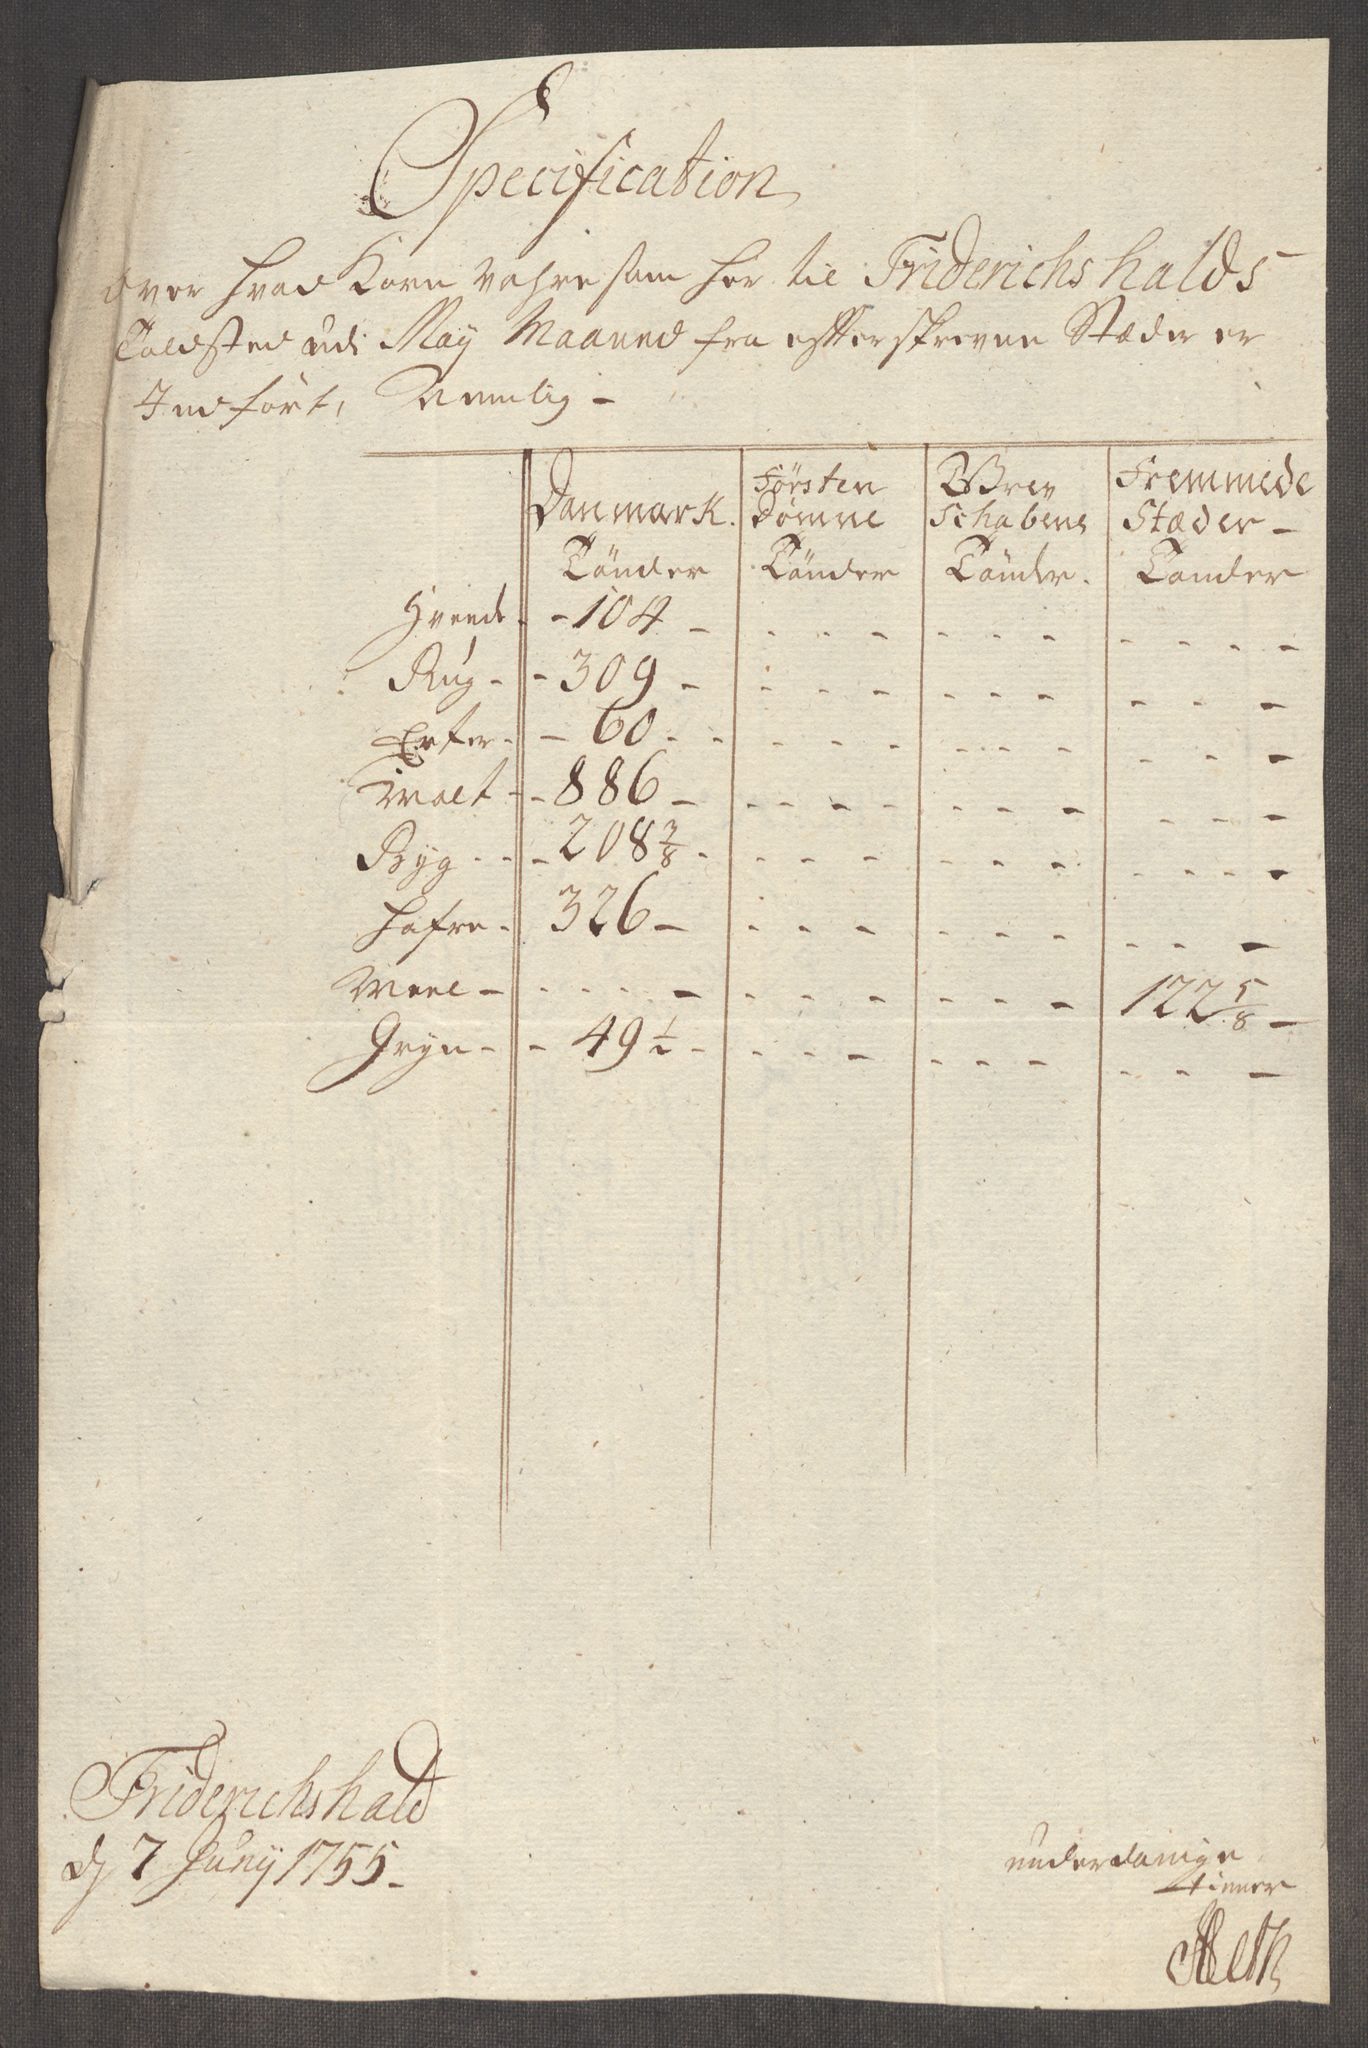 Specification
over hvad Korn Vahre som her til Friderichshalds
Toldsted udi May Maaned fra efterskrevne Stæder er
Indført, Nemlig -
Danmark. Førsten Dømme Grev Schabene Fremmede Stæder -
Tønder Tønder Tønder. Tønder
Hvede - - 104 - - - - - - - - - - -
Rug - - 309 - - - - - - - - - -
Erter - - 60 - - - - - - - - - - -
Malt - - 886 - - - - - - - - - - -
Byg - - - 208 3/8 - - - - - - - - - - -
Hafre - 326 - - - - - - - - - -
Meel - - - - - - - - - - - - 122 5/8 -
Gryn - - 49 1/2 - - - - - - - - - -
Friderichshald
d 7 Juny 1755 -
underdanige
tiener